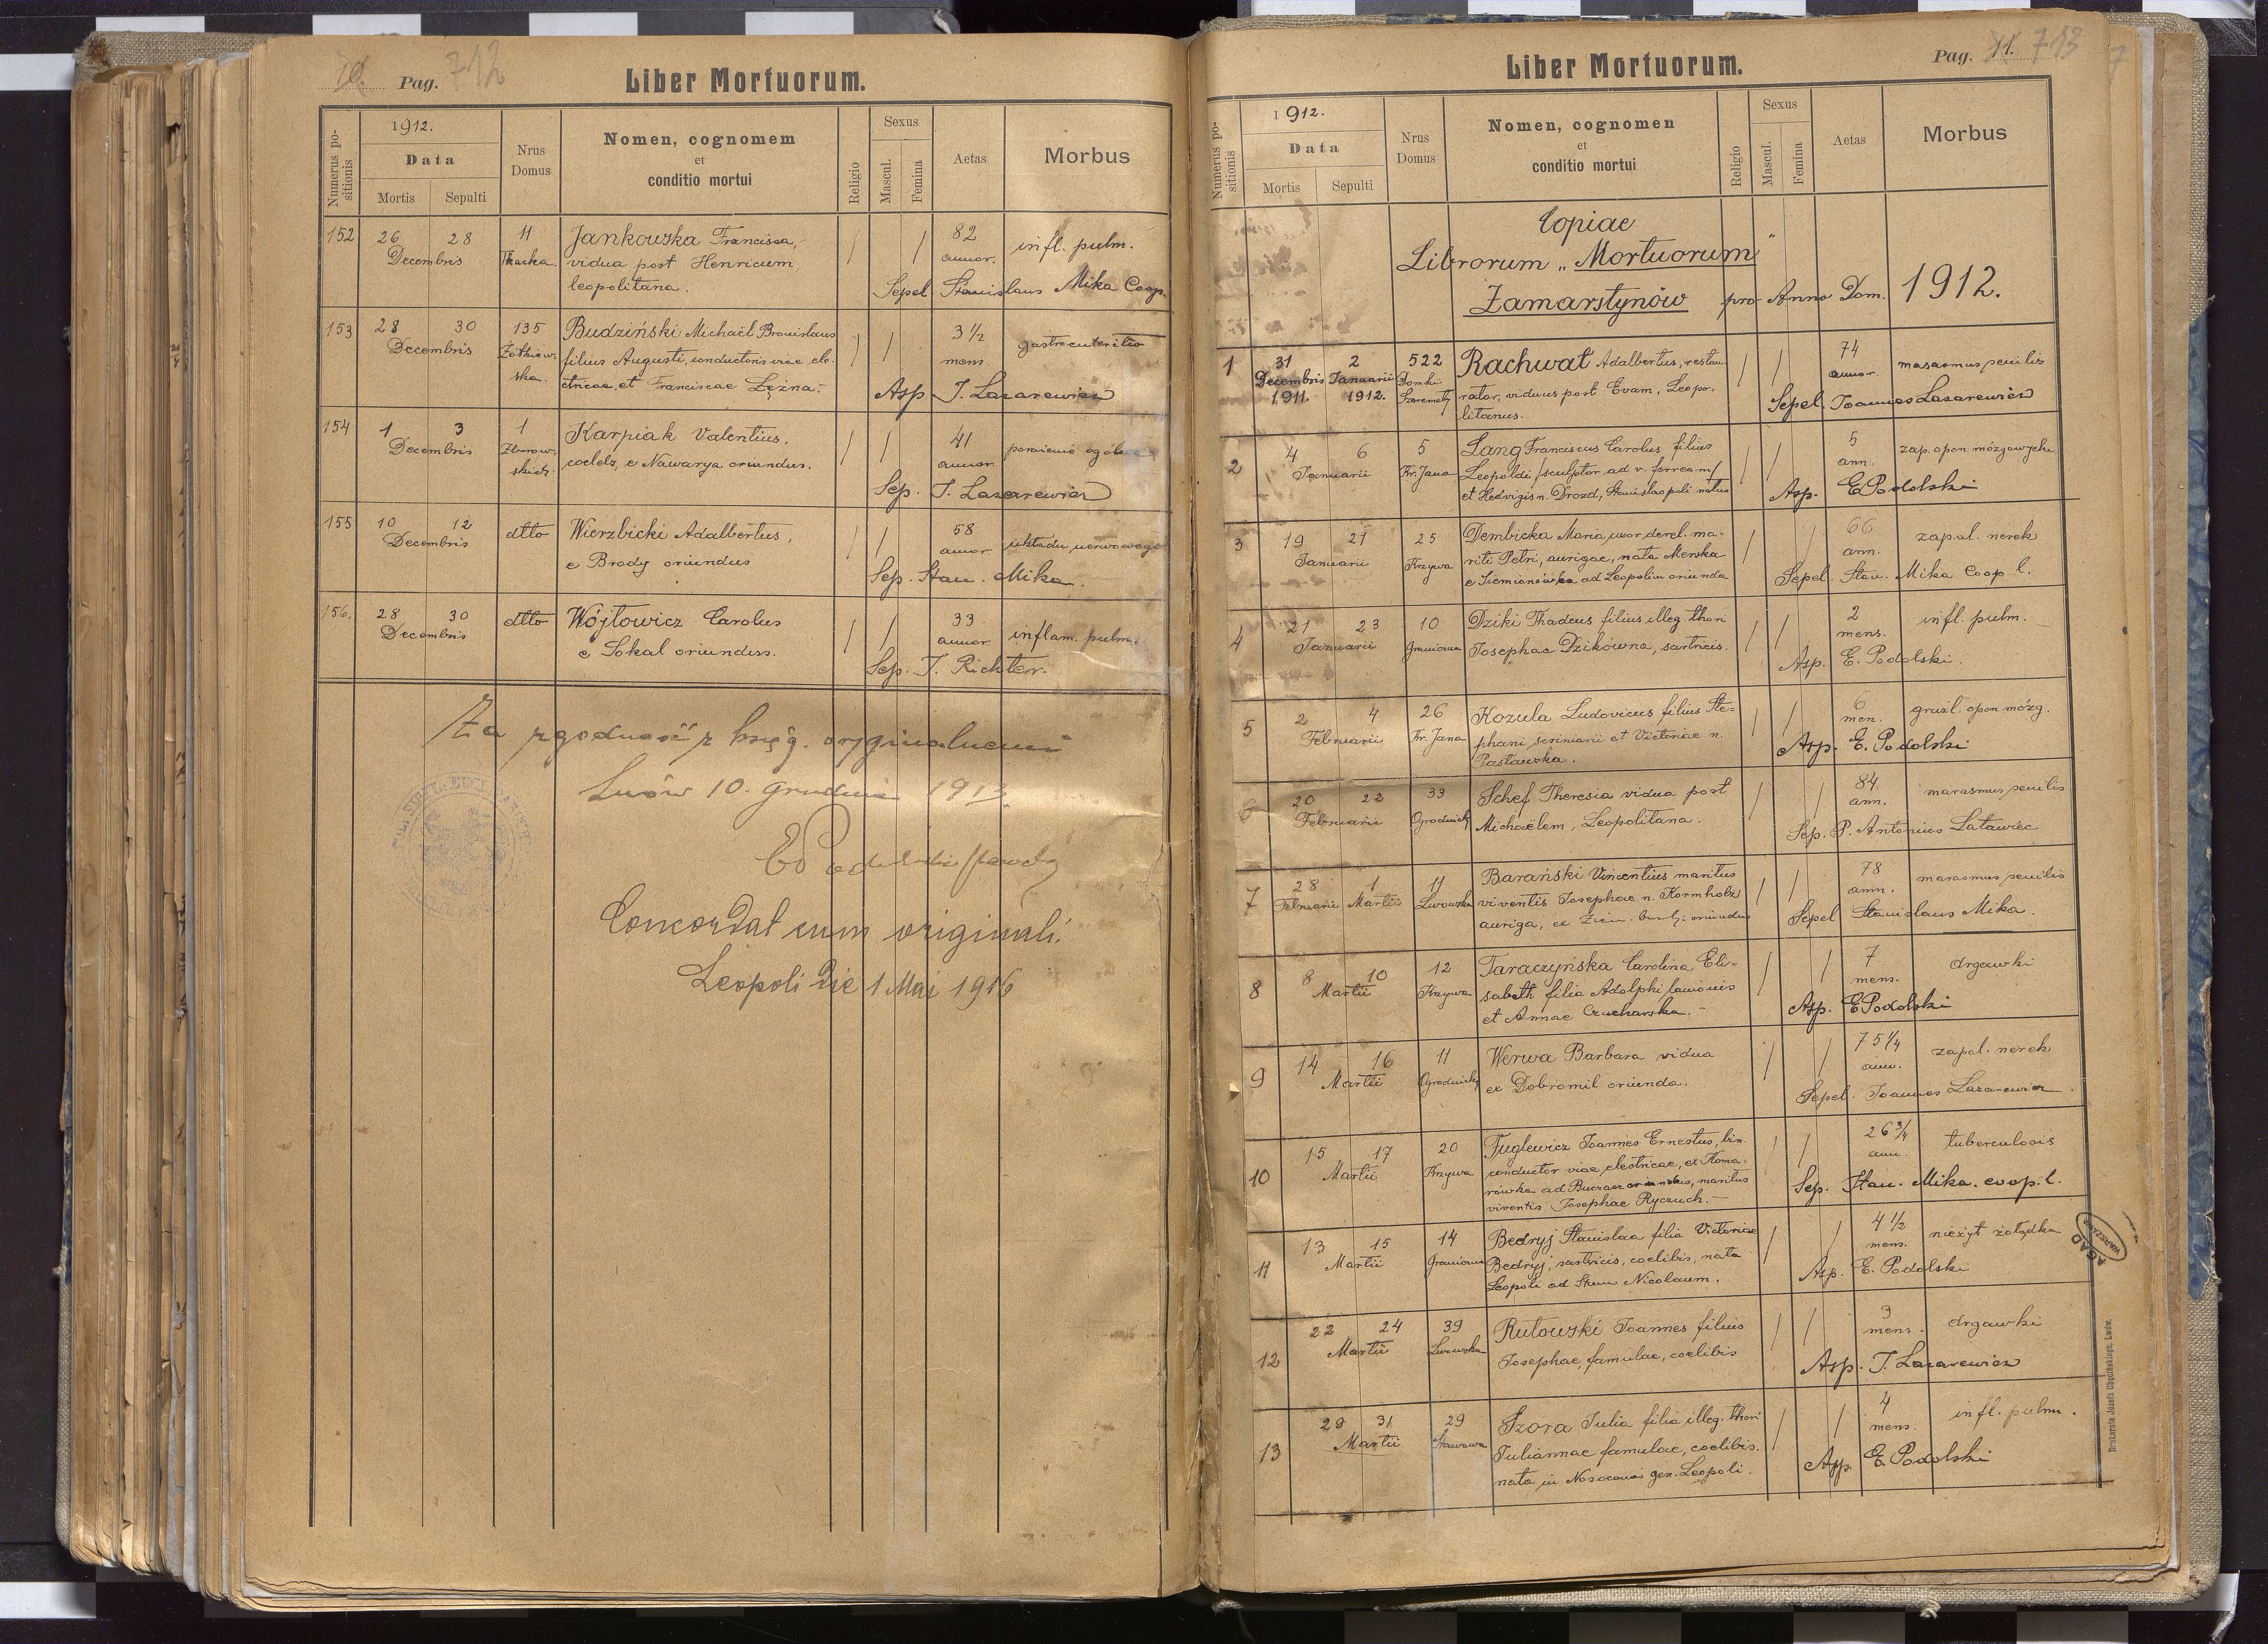 10. Pag. 712
Liber Mortuorum.
Numerus positionis
1912.
Data
Mortis Sepulti
Nrus Domus
Nomen, cognomem
et
conditio mortui
Religio
Sexus
Mascul. Femina
Aetas
Morbus
152 26 28 11 Jankowska Francisca, / / 82 infl. pulm.
Decembris Tkacka. vidua post Henricum, annor.
leopolitana. Sepel. Stanislaus Mika Coop.
153 28 30 135 Budziński Michaël Bronislaus / / 3 1/2 gastroenteritis
Decembris Żółkiew- filius Augusti, conductoris viae ele- mens.
ska. ctricae et Franciscae Lężna.- Asp. J. Lazarewicz
154 1 3 1 Karpiak Valentius, / / 41 porażenie ogólne
Decembris Zborow- coelebs, e Nawarya oriundus. annor.
skich. Sep. J. Lazarewicz
155 10 12 dtto Wierzbicki Adalbertus, / / 58 układu nerwowego
Decembris e Brody oriundus annor.
Sep. Stan. Mika.
156. 28 30 dtto Wójtowicz Carolus / / 33 inflam. pulm.
Decembris e Sokal oriundus. annor.
Sep. J. Richter.
Za zgodność z księg. oryginalnemi
Lwów 10. grudnia 1913.
E Podolski
Concordat cum originali.
Leopoli die 1 Mai 1916
Pag. 11. 713
Liber Mortuorum.
Numerus positionis
1912.
Data
Mortis Sepulti
Nrus Domus
Nomen, cognomen
et
conditio mortui
Religio
Sexus
Mascul. Femina
Aetas
Morbus
Copiae
Librorum „Mortuorum"
Zamarstynów pro Anno Dom. 1912.
1 31 2 522 Rachwał Adalbertus, restau- / / 74 marasmus senilis
Decembris Januarii Domki rator, viduus post Evam, Leopo- annor.
1911. 1912. Szeremety litanus. Sepel. Joannes Lazarewicz
2 4 6 5 Lang Franciscus Carolus filius / / 5 zap. opon mózgowych
Januarii Kr. Jana Leopoldi /sculptor ad v. ferream/ ann.
et Hedvigis n. Drozd, Stanislaopoli natus Asp. E Podolski
3 19 21 25 Dembicka Maria uxor derel. ma- / / 66 zapal. nerek
Januarii Krzywa riti Petri, aurigae, nata Merska ann.
e Siemianówka ad Leopolim oriunda Sepel. Stan. Mika Coop. l.
4 21 23 10 Dziki Thadeus filius illeg. thori / / 2 infl. pulm.
Januarii Graniczna Josephae Dzikówna, sartricis. mens.
Asp. E. Podolski.
5 2 4 26 Kozula Ludovicus filius Ste- / / 6 gruźl. opon mózg.
Februarii Kr. Jana phani, scriniarii et Victoriae n. men.
Pastawska. Asp. E. Podolski
6 20 22 33 Schef Theresia vidua post / / 84 marasmus senilis
Februarii Ogrodnicka Michaëlem, Leopolitana. ann.
Sep. P. Antonius Latawiec
7 28 1 11 Barański Vincentius maritus / / 78 marasmus senilis
Februarii Martii Lwowska viventis Josephae n. Kormholz ann.
auriga, ex oriundus Sepel. Stanislaus Mika.
8 8 10 12 Taraczyńska Carolina Eli- / / 7 drgawki
Martii Krzywa sabeth filia Adolphi lanionis mens.
et Annae Czucharska.- Asp. E Podolski
9 14 16 11 Werwa Barbara vidua / / 75 1/4 zapal. nerek
Martii Ogrodnicka ex Dobromil oriunda. ann.
Sepel. Joannes Lazarewicz.
10 15 17 20 Fuglewicz Joannes Ernestus, bin. / / 26 3/4 tuberculosis
Martii Krzywa conductor viae electricae, ex Koma- ann.
rówka ad Buczacz oriundus, maritus Sep. Stan. Mika. coop. l.
viventis Josephae Ryczuch.-
11 13 15 14 Bedryj Stanislaa filia Victoriae / / 4 1/2 nieżyt żołądka
Martii Graniczna Bedryj, sartricis, coelibis, nata mens.
Leopoli ad Stum Nicolaum. Asp. E. Podolski
12 22 24 39 Rutowski Joannes filius / / 3 drgawki
Martii Lwowska Josephae, famulae, coelibis mens.
Asp. J. Lazarewicz
13 29 31 29 Szora Julia filia illeg. thori / / 4 infl. pulm.
Martii Stawowa Juliannae famulae, coelibis. mens.
nata in Nosocomio gen. Leopoli. Asp. E. Podolski
AGAD
WARSZAWA
Drukarnia Józefa Chęcińskiego, Lwów.